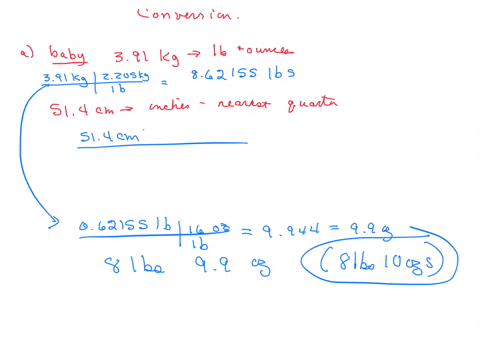 Conversion.
a) baby 3.91 kg → lb + ounces
3.91 kg | 2.205 kg = 8.62155 lbs
1b
51.4 cm → inches - nearest quarter
51.4 cm
0.62155 lb | 16 oz = 9.944 = 9.9 oz
1b
8 lbs 9.9 oz (8 lbs 10 ozs)